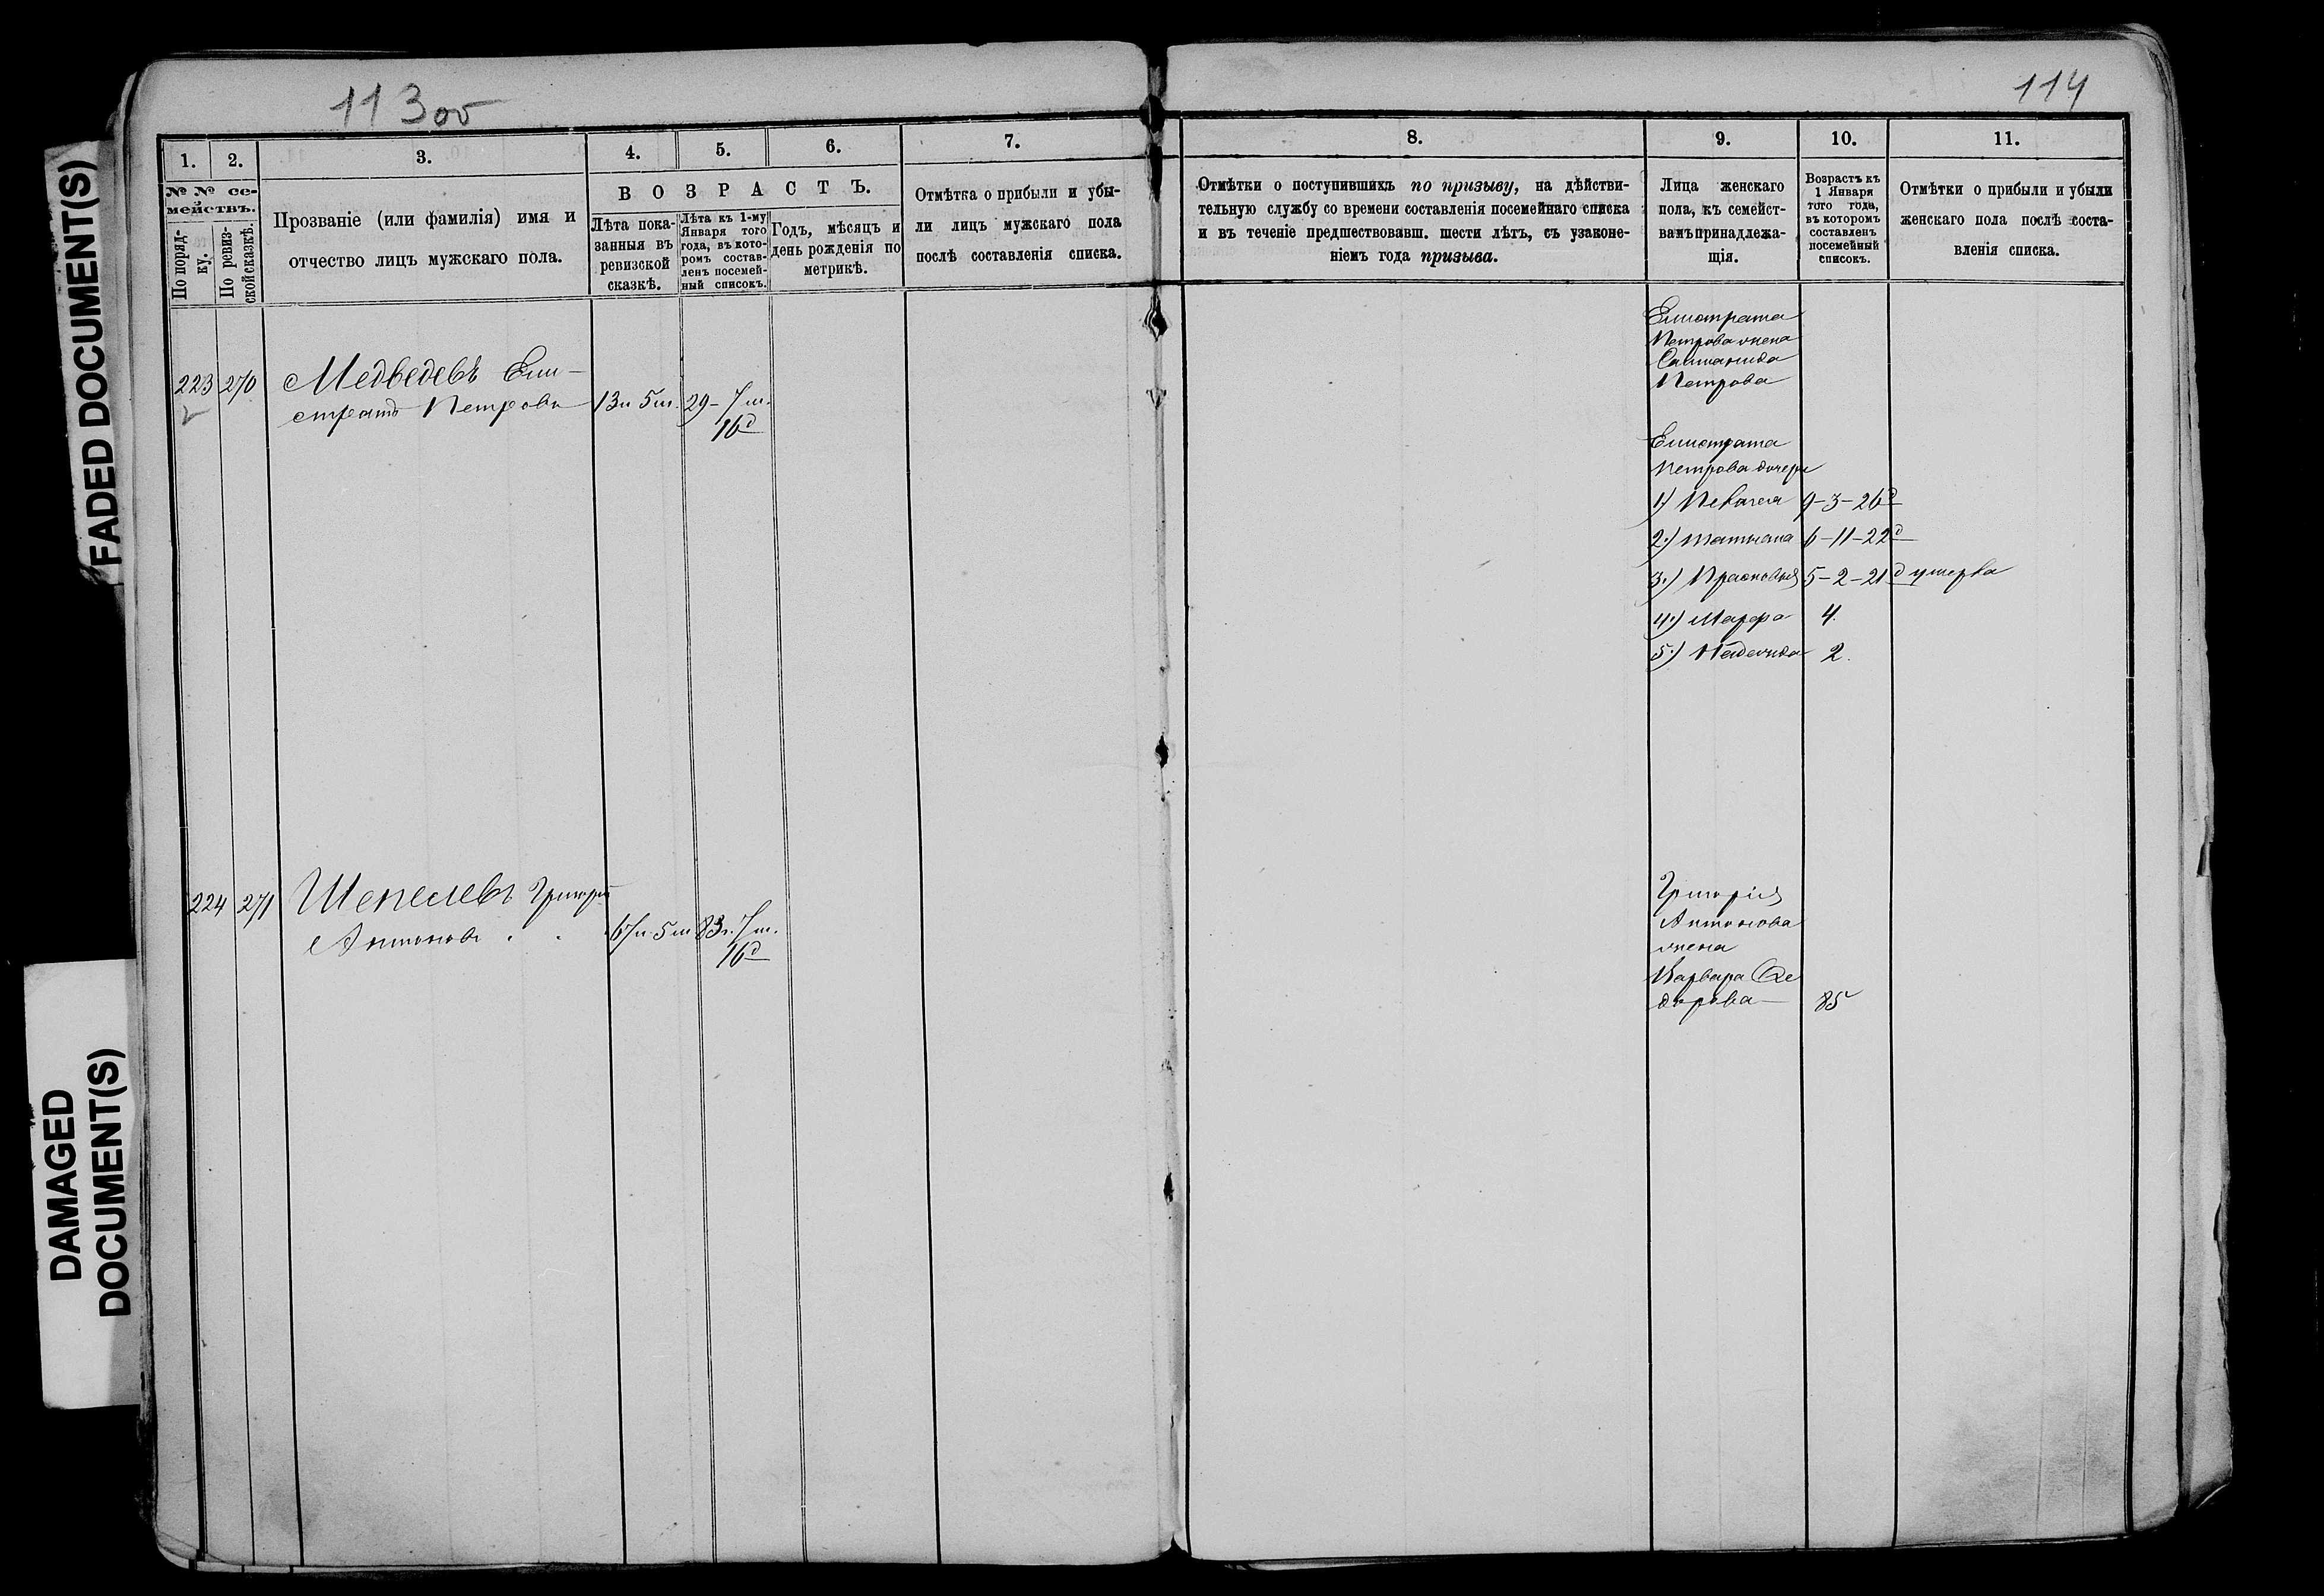 113 об
114
FADED DOCUMENT(S)
DAMAGED
DOCUMENT(S)
1.
2.
3.
4.
5.
6.
7.
№ № се-
мействъ.
По поряд-
ку.
По ревиз-
ской сказкѣ.
Прозваніе (или фамилія) имя и
отчество лицъ мужскаго пола.
ВОЗРАСТЪ.
Лѣта пока-
занныя въ
ревизской
сказкѣ.
Лѣта къ 1-му
Января того
года, въ кото-
ромъ состав-
ленъ посемей-
ный списокъ.
Годъ, мѣсяцъ и
день рожденія по
метрикѣ.
Отмѣтка о прибыли и убы-
ли лицъ мужскаго пола
послѣ составленія списка.
223
270
Медведевъ Ели-
стратъ Петровъ
13л 5м.
29 – 7м.
16д
224
271
Шепелевъ Григорій
Антоновъ
67л. 5м
83г. 7м.
16д
8.
9.
10.
11.
Отмѣтки о поступившихъ по призыву, на дѣйстви-
тельную службу со времени составленія посемейнаго списка
и въ теченіе предшествовавш. шести лѣтъ, съ узаконе-
ніемъ года призыва.
Лица женскаго
пола, къ семейст-
вамъ принадлежа-
щія.
Возрастъ къ
1 Января
того года,
въ которомъ
составленъ
посемейный
списокъ.
Отмѣтки о прибыли и убыли
женскаго пола послѣ соста-
вленія списка.
Елистрата
Петрова жена
Петрова
Елистрата
Петрова дочери
1) 9–3–26д
2.) Татьяна 6–11–22д
3.) Прасковья 5–2–21д умерла
4.) Марфа 4.
5.) Надежда 2.
Григорія
Антонова
жена
Варвара Ѳе
дорова 85